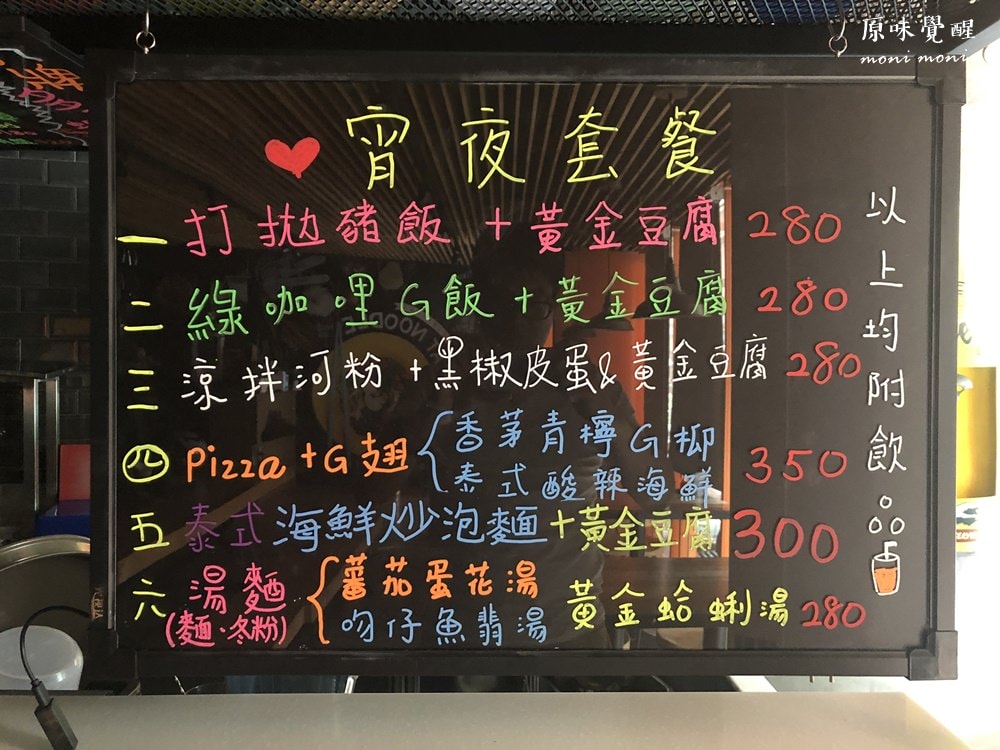 原味覺醒
moni moni
宵夜套餐
一 打拋豬飯＋黃金豆腐 280
二 綠咖哩G飯＋黃金豆腐 280
三 涼拌河粉＋黑椒皮蛋&黃金豆腐 280
四 Pizza＋G翅 香茅青檸G柳 350
泰式酸辣海鮮
五 泰式海鮮炒泡麵＋黃金豆腐 300
六 湯麵 蕃茄蛋花湯 黃金蛤蜊湯 280
(麵·冬粉) 吻仔魚翡湯
以上均附飲